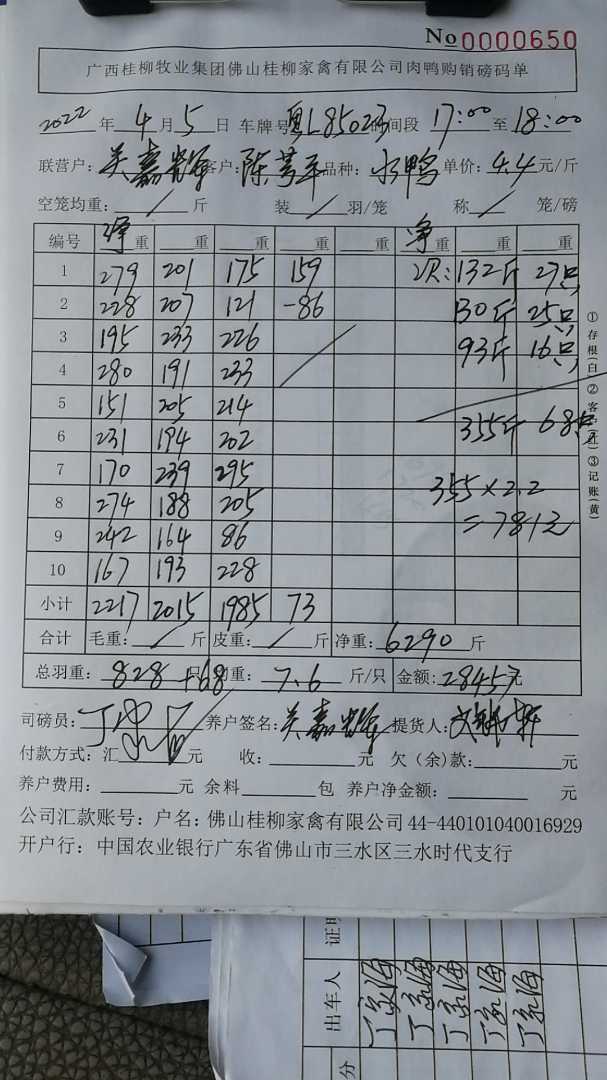 No 0000650
广西桂柳牧业集团佛山桂柳家禽有限公司肉鸭购销磅码单
2022 年 4 月 5 日 车牌号 粤L85023 时间段 17:00 至 18:00
联营户: 关嘉辉 客户: 陈 品种: 水鸭 单价: 4.4 元/斤
空笼均重: / 斤 装 / 羽/笼 称 / 笼/磅
编号 净重 重 重 重 重 净重 重 重
1 279 201 175 159 2次: 132斤 27只
2 228 207 121 -86 130斤 25只
3 195 233 226 93斤 16只
4 280 191 233
5 151 205 214
6 231 194 202 355斤 68只
7 170 239 295
8 274 188 205 355×2.2
9 242 164 86 =781元
10 167 193 228
小计 2217 2015 1985 73
合计 毛重: / 斤 皮重: / 斤 净重: 6290 斤
总羽重: 828+68 只 均重: 7.6 斤/只 金额: 28457元
司磅员: 丁家海 养户签名: 关嘉辉 提货人:
付款方式: 汇 元 收: 元 欠(余)款: 元
养户费用: 元 余料 包 养户净金额: 元
公司汇款账号: 户名: 佛山桂柳家禽有限公司 44-440101040016929
开户行: 中国农业银行广东省佛山市三水区三水时代支行
①存根(白)②客户(红)③记账(黄)
证明
出车人
丁家海
丁家海
丁家海
丁家海
丁家海
分